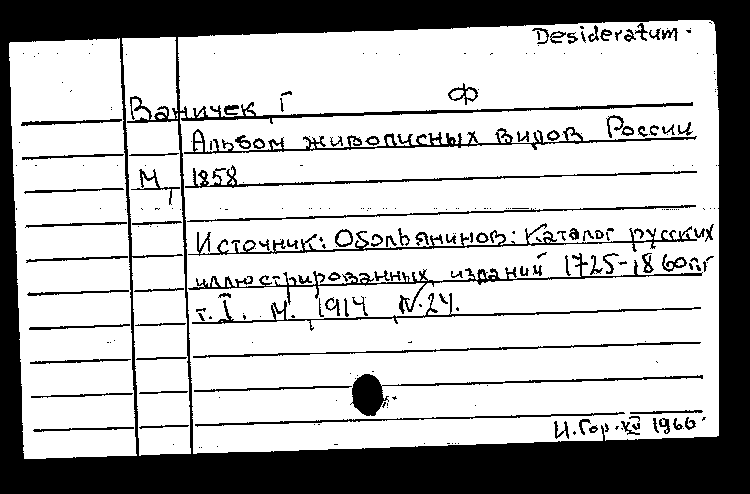 Desideratum.
Ваничек, Г
Ф
Альбом живописных видов России
М, 1858
Источник: Обольянинов: Каталог русских
иллюстрированных изданий 1725-1860гг
т. I. М., 1914, N.24.
И. Гор. XII 1966.